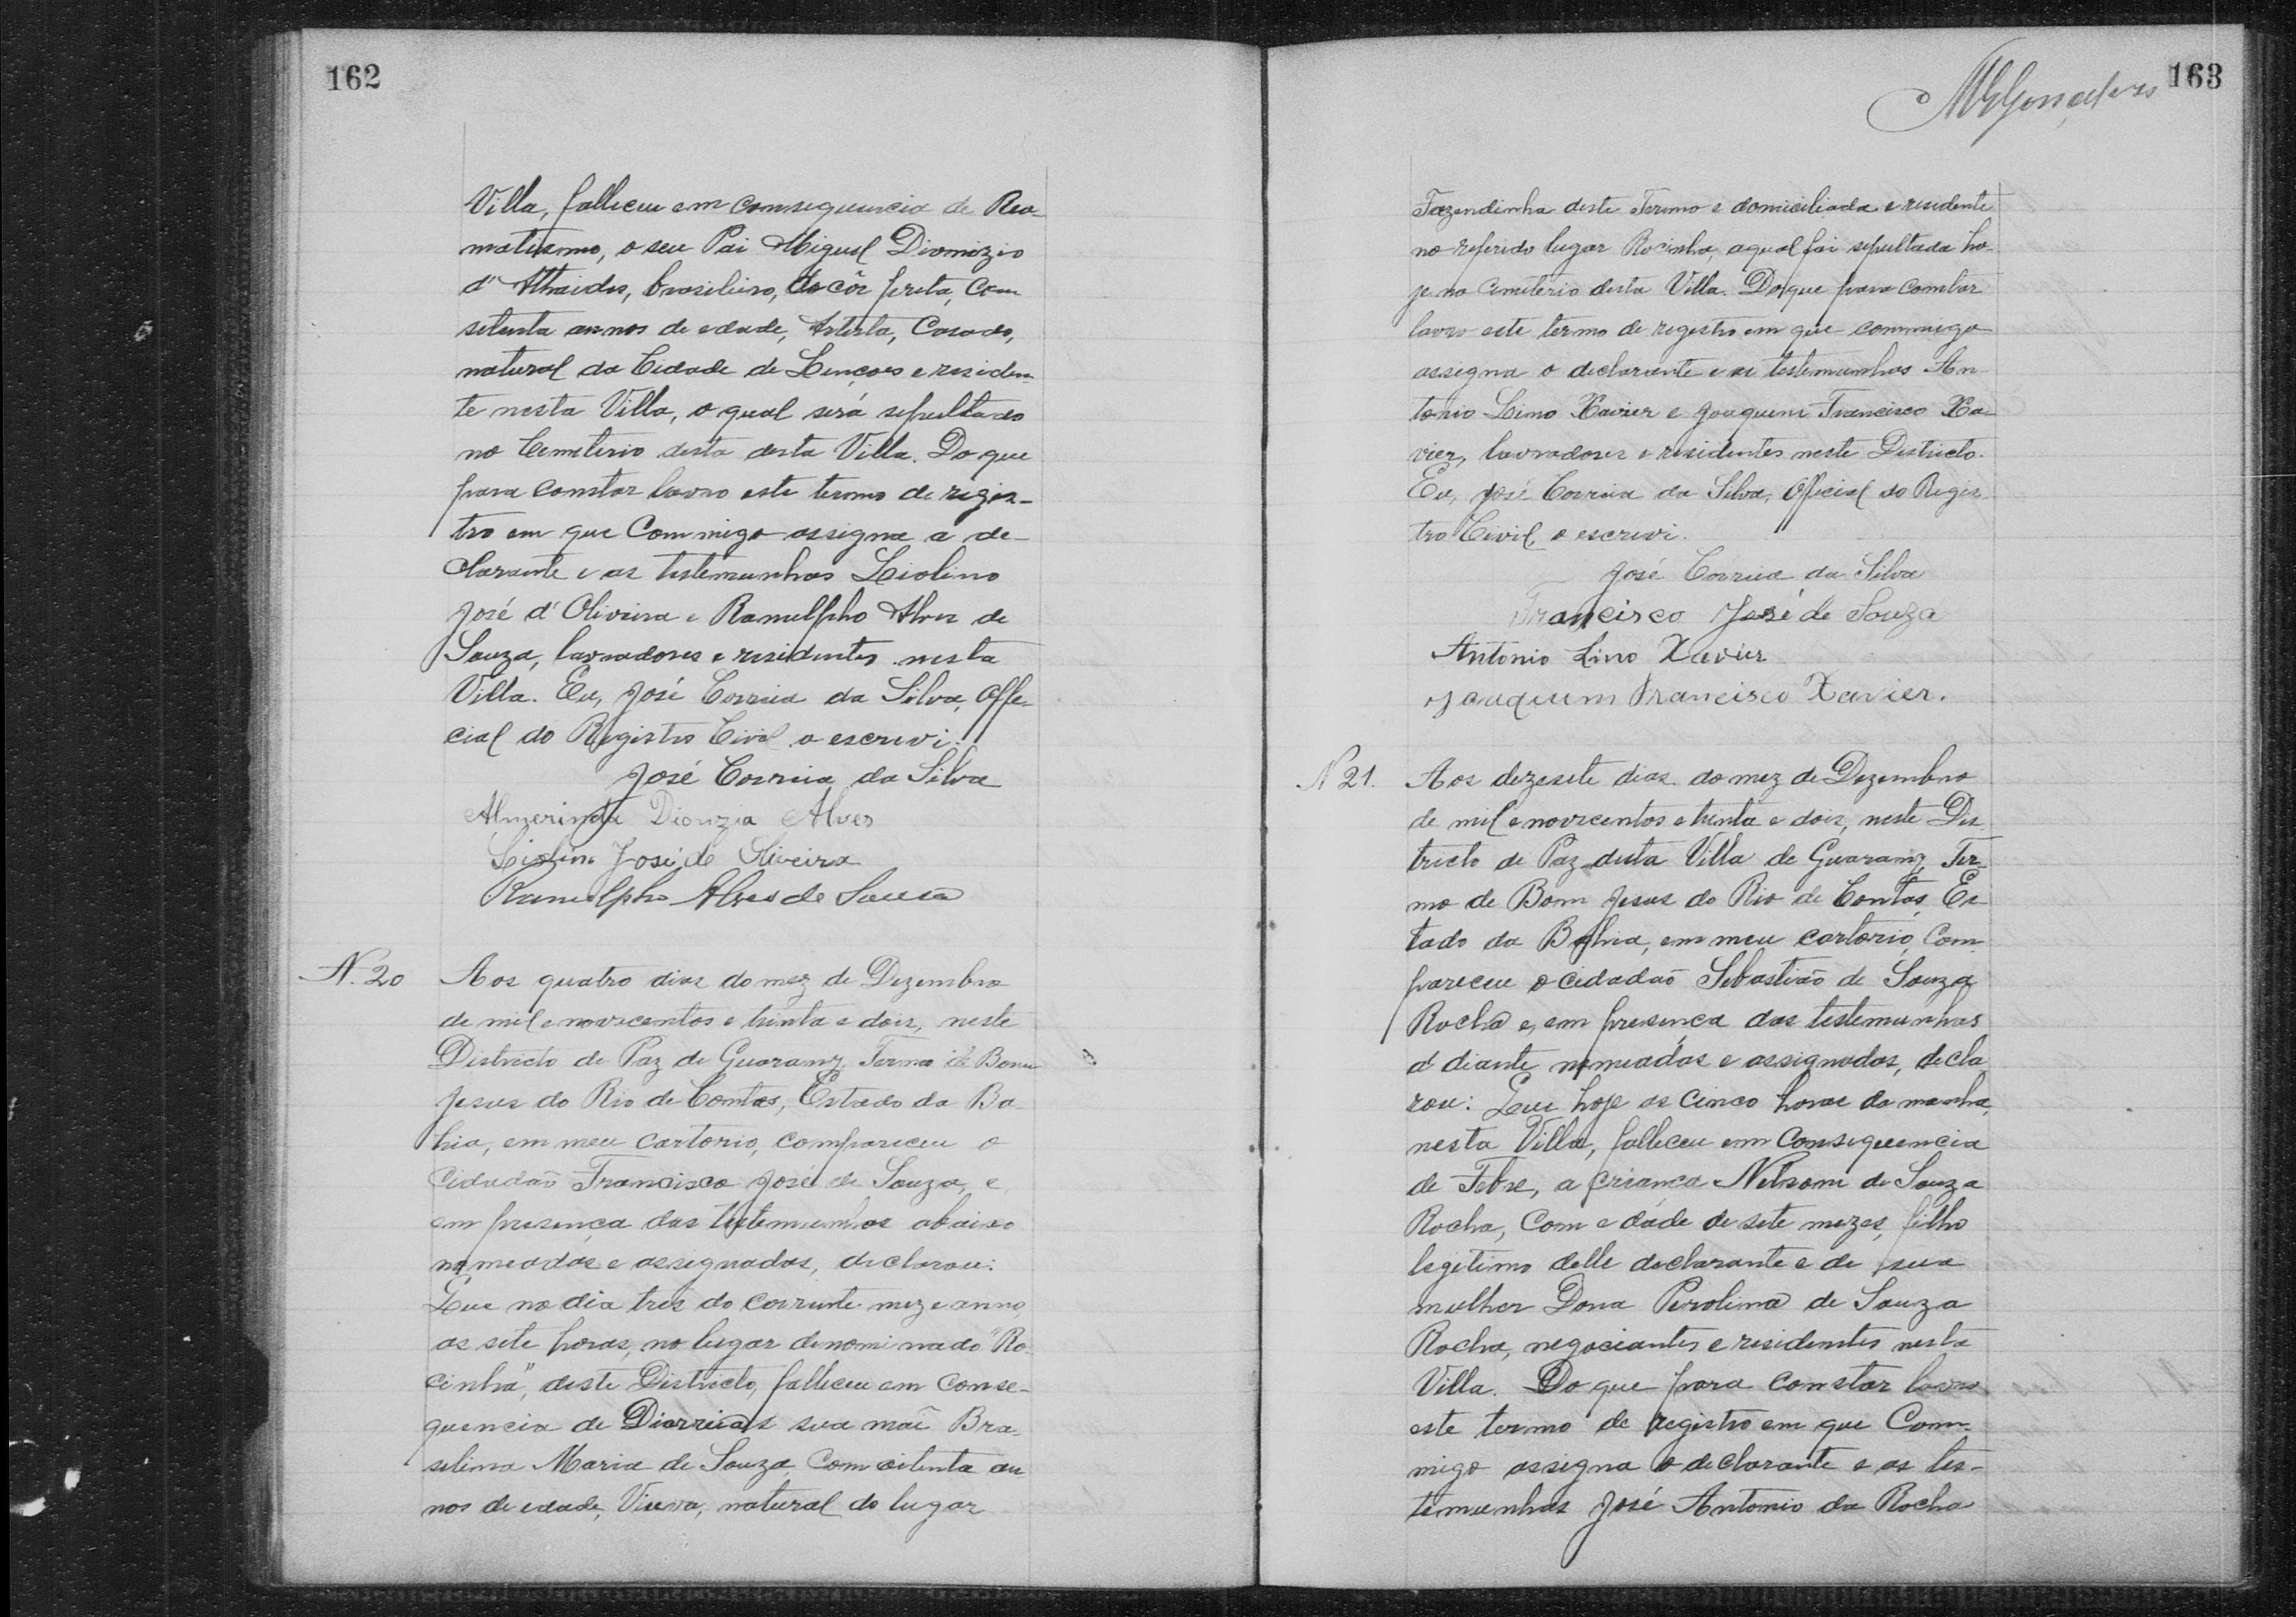 162
Villa, falleceu em consequencia de Reo-
matismo, o seu Pai Miguel Dionizio
d'Athaides, brasileiro, de côr preta, com
setenta annos de edade, Artista, Casado,
natural da Cidade de Lençoes e residen-
te nesta Villa, o qual será sepultado
no Cemeterio desta desta Villa. Do que
para constar lavro este termo de regis-
tro em que Commigo assigna a de-
clarante e as testemunhas Liolino
José d'Oliveira e Ramulpho Alves de
Souza, lavradores e residentes nesta
Villa. Eu, José Correia da Silva, Offi-
cial do Registro Civil o escrevi.
José Correia da Silva
Almerinda Dionizia Alves
Liolino José de Oliveira
Ramulpho Alves de Sousa
N. 20
Aos quatro dias do mez de Dezembro
de mil e novecentos e trinta e dois, neste
Districto de Paz de Guarany, Termo de Bom
Jesus do Rio de Contas, Estado da Ba-
hia, em meu cartorio, compareceu o
cidadaõ Francisco José de Souza, e
em presença das testemunhas abaixo
nomeadas e assignadas, declarou:
Que no dia tres do corrente mez e anno
as sete horas, no lugar denominado "Ro-
cinha", deste Districto, falleceu em conse-
quencia de Diarreias sua maĩ Bra-
selina Maria de Souza, com oitenta an
nos de edade, Viuva, natural do lugar
163
MGGonçalves
Fazendinha deste Termo e domiciliada e residente
no referido lugar Rocinha, a qual foi sepultada ho-
je no Cimiterio desta Villa. Do que para constar
lavro este termo de registro em que commigo
assigna o declarante e as testemunhas An
tonio Lino Xavier e Joaquim Francisco Xa-
vier, lavradores e residentes neste Districto.
Eu, José Correia da Silva, Official do Regis
tro Civil, o escrevi.
José Correia da Silva
Francisco José de Souza
Antonio Lino Xavier
Joaquim Francisco Xavier.
N 21.
Aos dezesete dias do mez de Dezembro
de mil e novecentos e trinta e dois, neste Dis
tricto de Paz desta Villa de Guarany, Ter-
mo de Bom Jesus do Rio de Contas, Es
tado da Bahia, em meu cartorio, Com-
pareceu o cidadaõ Sebastiaõ de Souza
Rocha e, em presença das testemunhas
a diante nomeadas e assignadas, decla
rou: Que hoje as cinco horas da manha,
nesta Villa, falleceu em consequencia
de Febre, a criança Nelsom de Souza
Rocha, com edade de sete mezes, filho
legitimo delle declarante e de sua
mulher Dona Perolina de Souza
Rocha, negociantes e residentes nesta
Villa. Do que para constar lavro
este termo de registro em que Com-
migo assigna o declarante e as tes-
temunhas José Antonio da Rocha